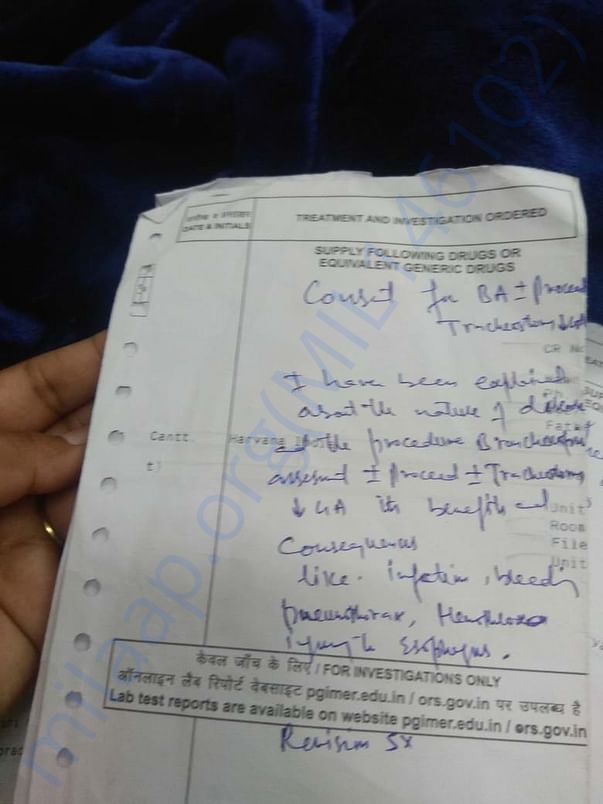 DATE & INITIALS
TREATMENT AND INVESTIGATION ORDERED
SUPPLY FOLLOWING DRUGS OR
EQUIVALENT GENERIC DRUGS
Consent for BA ± proceed
CR No
I have been explained
about the nature of disease
Cantt. Haryana
and the procedure
t)
assessment ± proceed ± Tracheostomy
↓ GA its benefits and
Unit
Room
Consequences
File
Unit
like infection, bleeding
pneumothorax,
injury to Esophagus.
केवल जाँच के लिए / FOR INVESTIGATIONS ONLY
ऑनलाइन लैब रिपोर्ट वेबसाइट pgimer.edu.in / ors.gov.in पर उपलब्ध है
Lab test reports are available on website pgimer.edu.in / ors.gov.in
Revision Sx
milaap.org(MIL 46102)